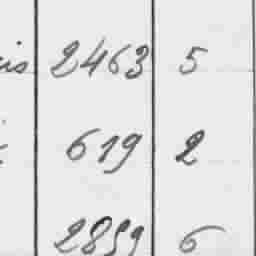 is 2463 5
619 2
2859 6